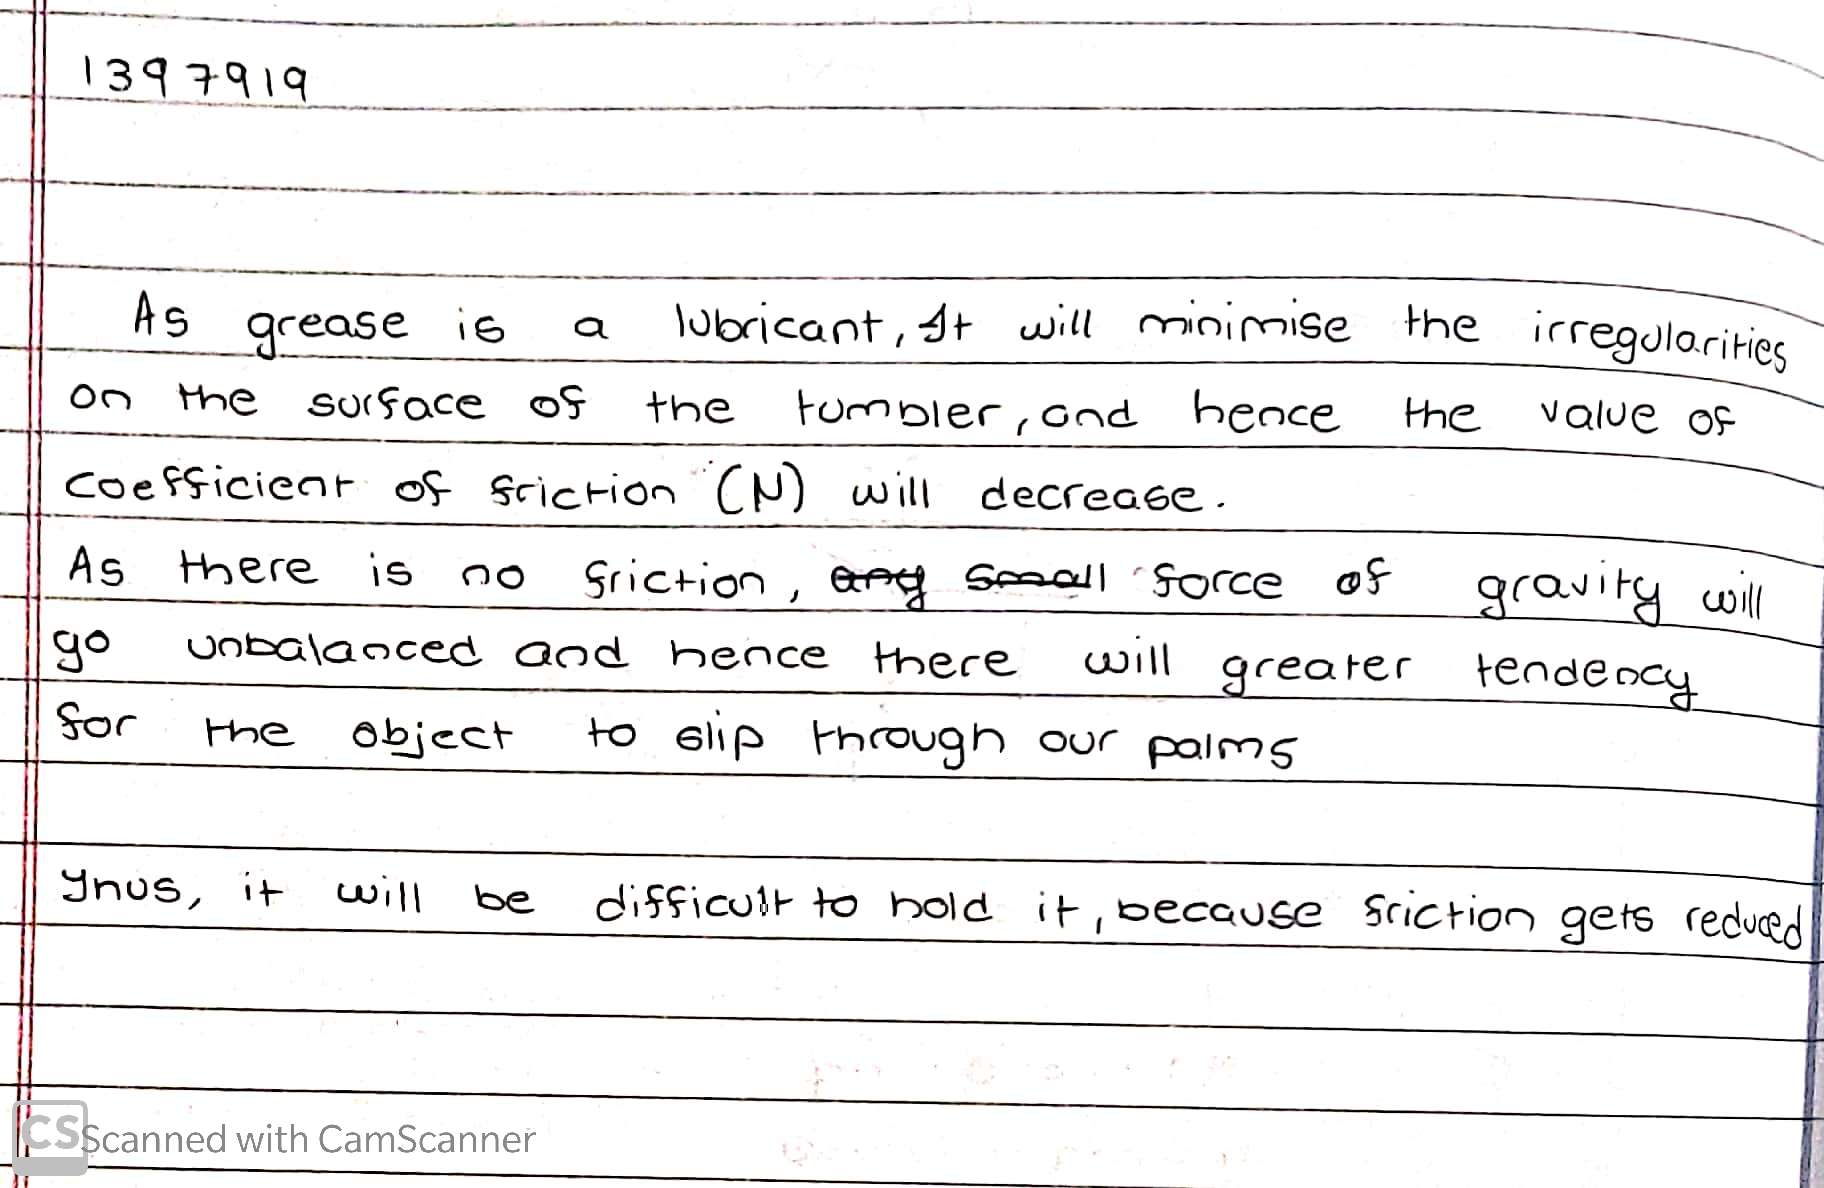 1397919
As grease is a lubricant, It will minimise the irregularities
on the surface of the tumbler, and hence the value of
coefficient of friction (N) will decrease.
As there is no friction, any small force of gravity will
go unbalanced and hence there will greater tendency
for the object to slip through our palms
Thus, it will be difficult to hold it, because friction gets reduced
CS Scanned with CamScanner